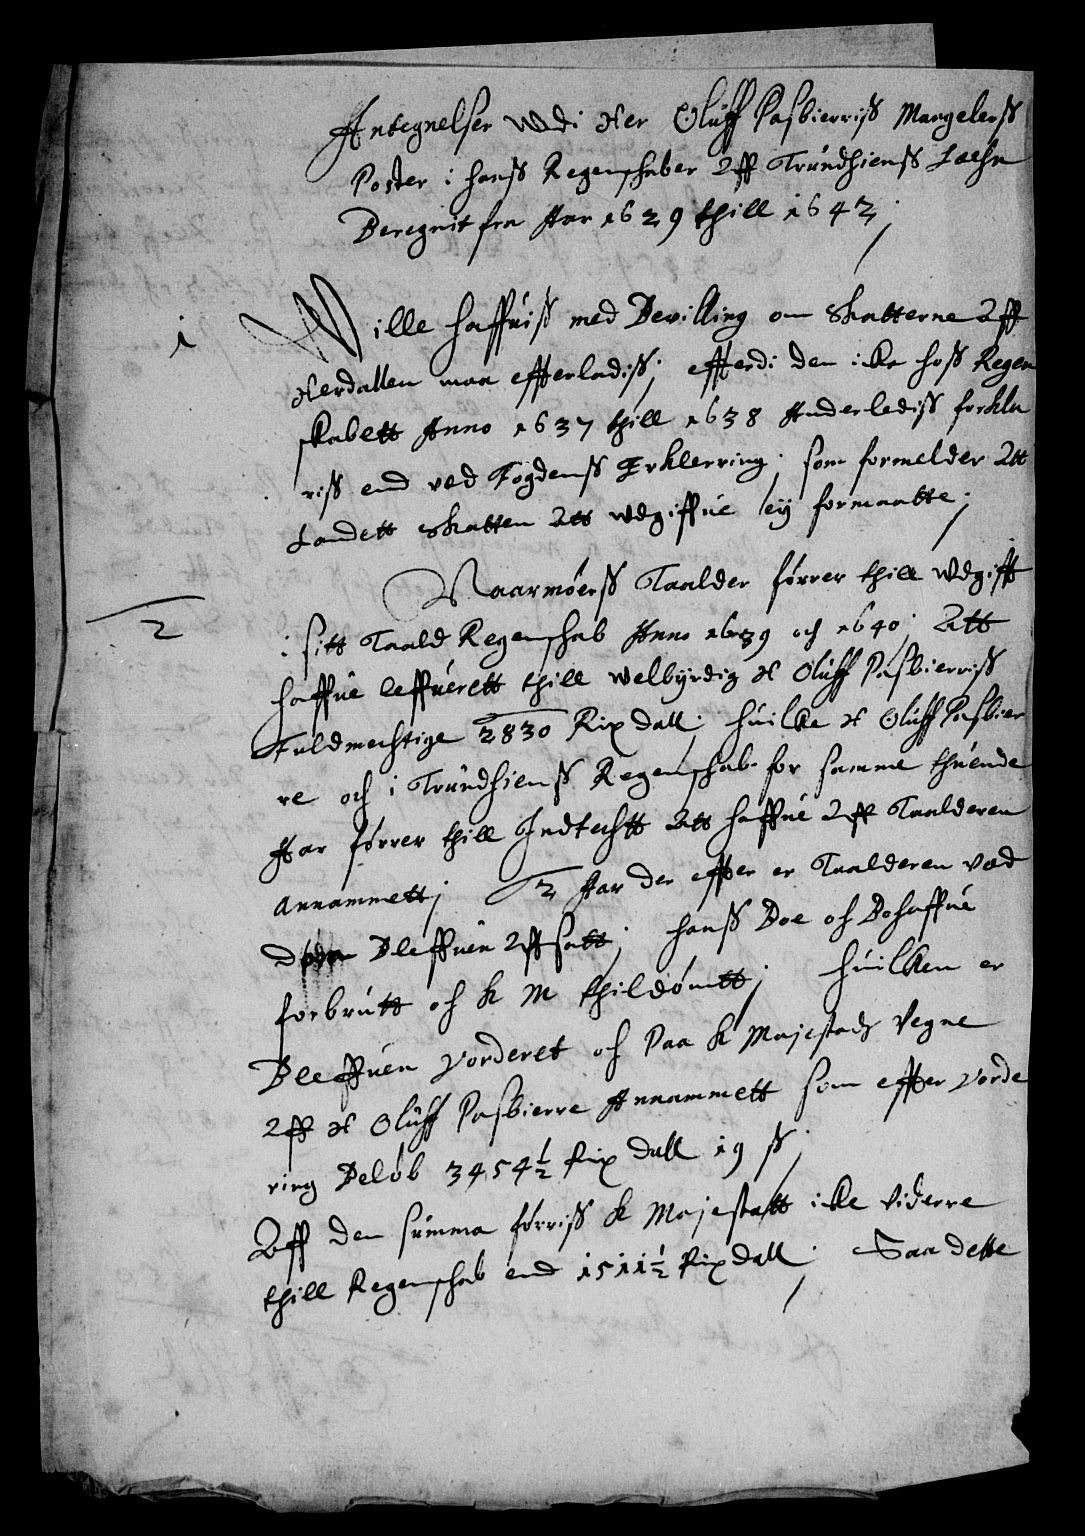 Antegnelser Wdi Her Oluff Pasbierriss Mangelerss
Poster i hanss Regenschaber Aff Trundhienss Laehn
Beregnit fra Aar 1629 thill 1642;
1 Wille haffuiss med Bevilling om Skatterne Aff
Herdallen maa efterladiss; efterdi den icke hoss Regen
skabett Anno 1637 thill 1638 Anderlediss forkla
riss end ved Fogdenss Erklerring; som formelder Att
Landett Skatten Att udgiffue ey formaatte;
2 Naarmøerss Taalder førrer thill Wdgifft
i sitt Taald Regenschab Anno 1639 och 1640; Att
haffue leffuerett thill welbyrdig H Oluff Pasbierriss
Fuldmechtige 2830 Rix dall; huilke H Oluff Pasbier
re och i Trundhienss Regenschab for samme thuende
Aar førrer thill Indtechtt Att haffue Aff Taalderen
Annammett; 2 Aar der effter er Taalderen ved
døden Bleffuen Affsatt; hanss Boe och Bohaffue
forbrutt och K M thildømtt; huilken er
Bleffuen Vorderet och Paa K Majestadz Vegne
Aff H Oluff Pasbierre Annammett som effter Vorde
ring Beløb 3454½ Rix dall 19 ss;
Aff den summa førriss K Majestatt icke Viderre
thill Regenschab end 1511½ Rixdall; Saa dette